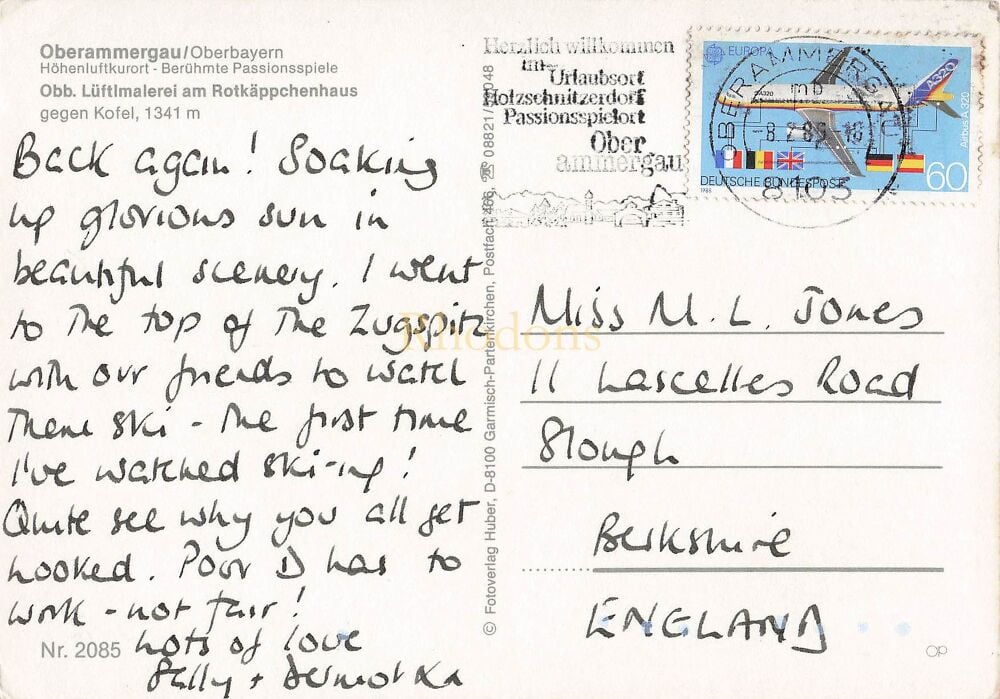 Oberammergau/Oberbayern
Höhenluftkurort - Berühmte Passionsspiele
Obb. Lüftlmalerei am Rotkäppchenhaus
gegen Kofel, 1341 m
Back again! Soaking
up glorious sun in
beautiful scenery. I went
to the top of the Zugspitz
with our friends to watch
them ski - the first time
I've watched ski-ing!
Quite see why you all get
hooked. Poor D has to
work - not fair!
Lots of love
Sally + Dermot xx
Nr. 2085
© Fotoverlag Huber, D-8100 Garmisch-Partenkirchen, Postfach 466, ☏ 08821/
Herzlich willkommen
im
Urlaubsort
Holzschnitzerdorf
Passionsspielort
Ober
ammergau
EUROPA
A320
A320
Airbus A 320
DEUTSCHE BUNDESPOST
60
1988
OBERAMMERGAU
mb
8103
Rhodons
Miss M. L. Jones
11 Lascelles Road
Slough
Berkshire
ENGLAND